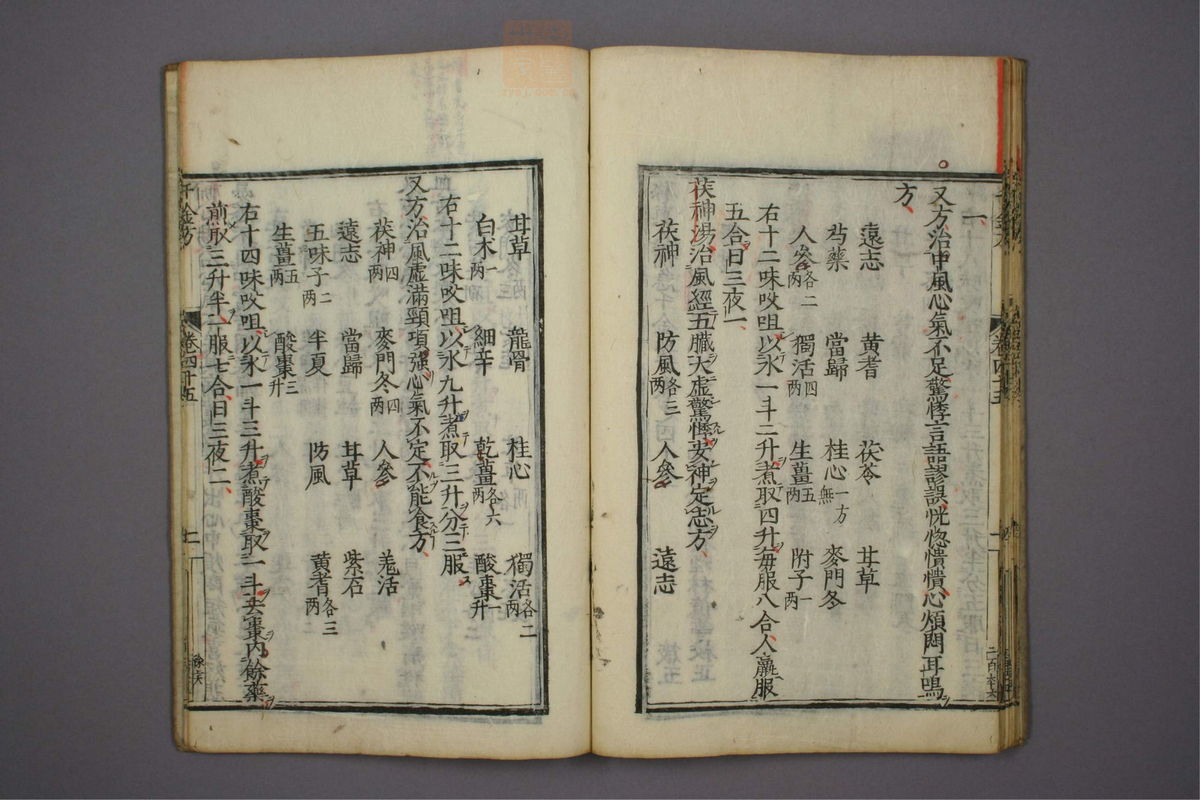 又方治中風心氣不足驚悸言語謬誤恍惚憒憒心煩悶耳鳴
方
遠志 黃耆 茯苓 甘草
芍藥 當歸 桂心一方無 麥門冬
人參各二兩 獨活四兩 生薑五兩 附子一兩
右十二味㕮咀以水一斗二升煮取四升每服八合人羸服
五合日三夜一
茯神湯治風經五臟大虛驚悸安神定志方
茯神 防風各三兩 人參 遠志
甘草 龍骨 桂心 獨活各二兩
白朮一兩 細辛 乾薑各六兩 酸棗一升
右十二味㕮咀以水九升煮取三升分三服
又方治風虛滿頸項強心氣不定不能食方
茯神四兩 麥門冬四兩 人參 羗活
遠志 當歸 甘草 紫石
五味子二兩 半夏 防風 黃耆各三兩
生薑五兩 酸棗三升
右十四味㕮咀以水一斗三升煮酸棗取一斗去棗內餘藥
煎取三升半一服七合日三夜二
千金方 卷之四十五